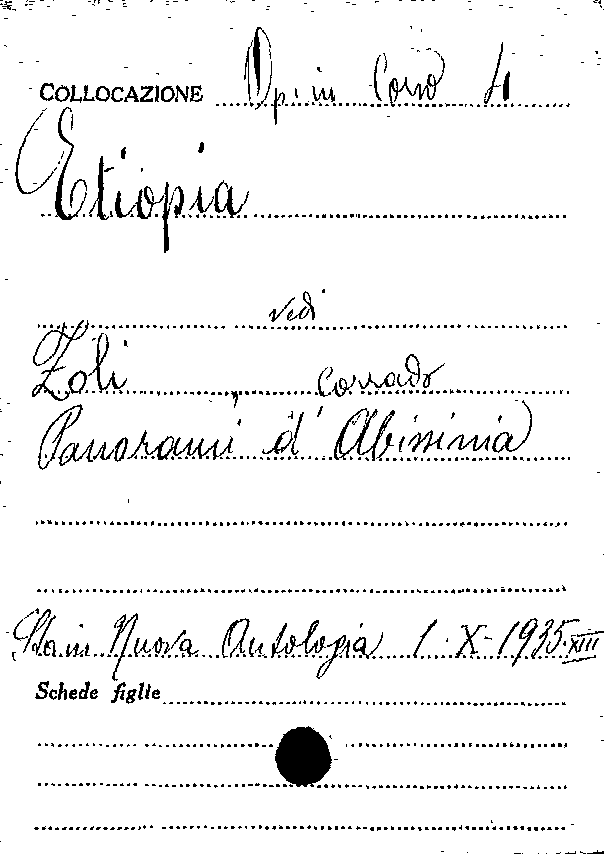 COLLOCAZIONE Op. in Corso 4
Etiopia
vedi
Zoli, Corrado
Panorami d'Abissinia
Sta in Nuova Antologia 1-X-1935.XIII
Schede figlie